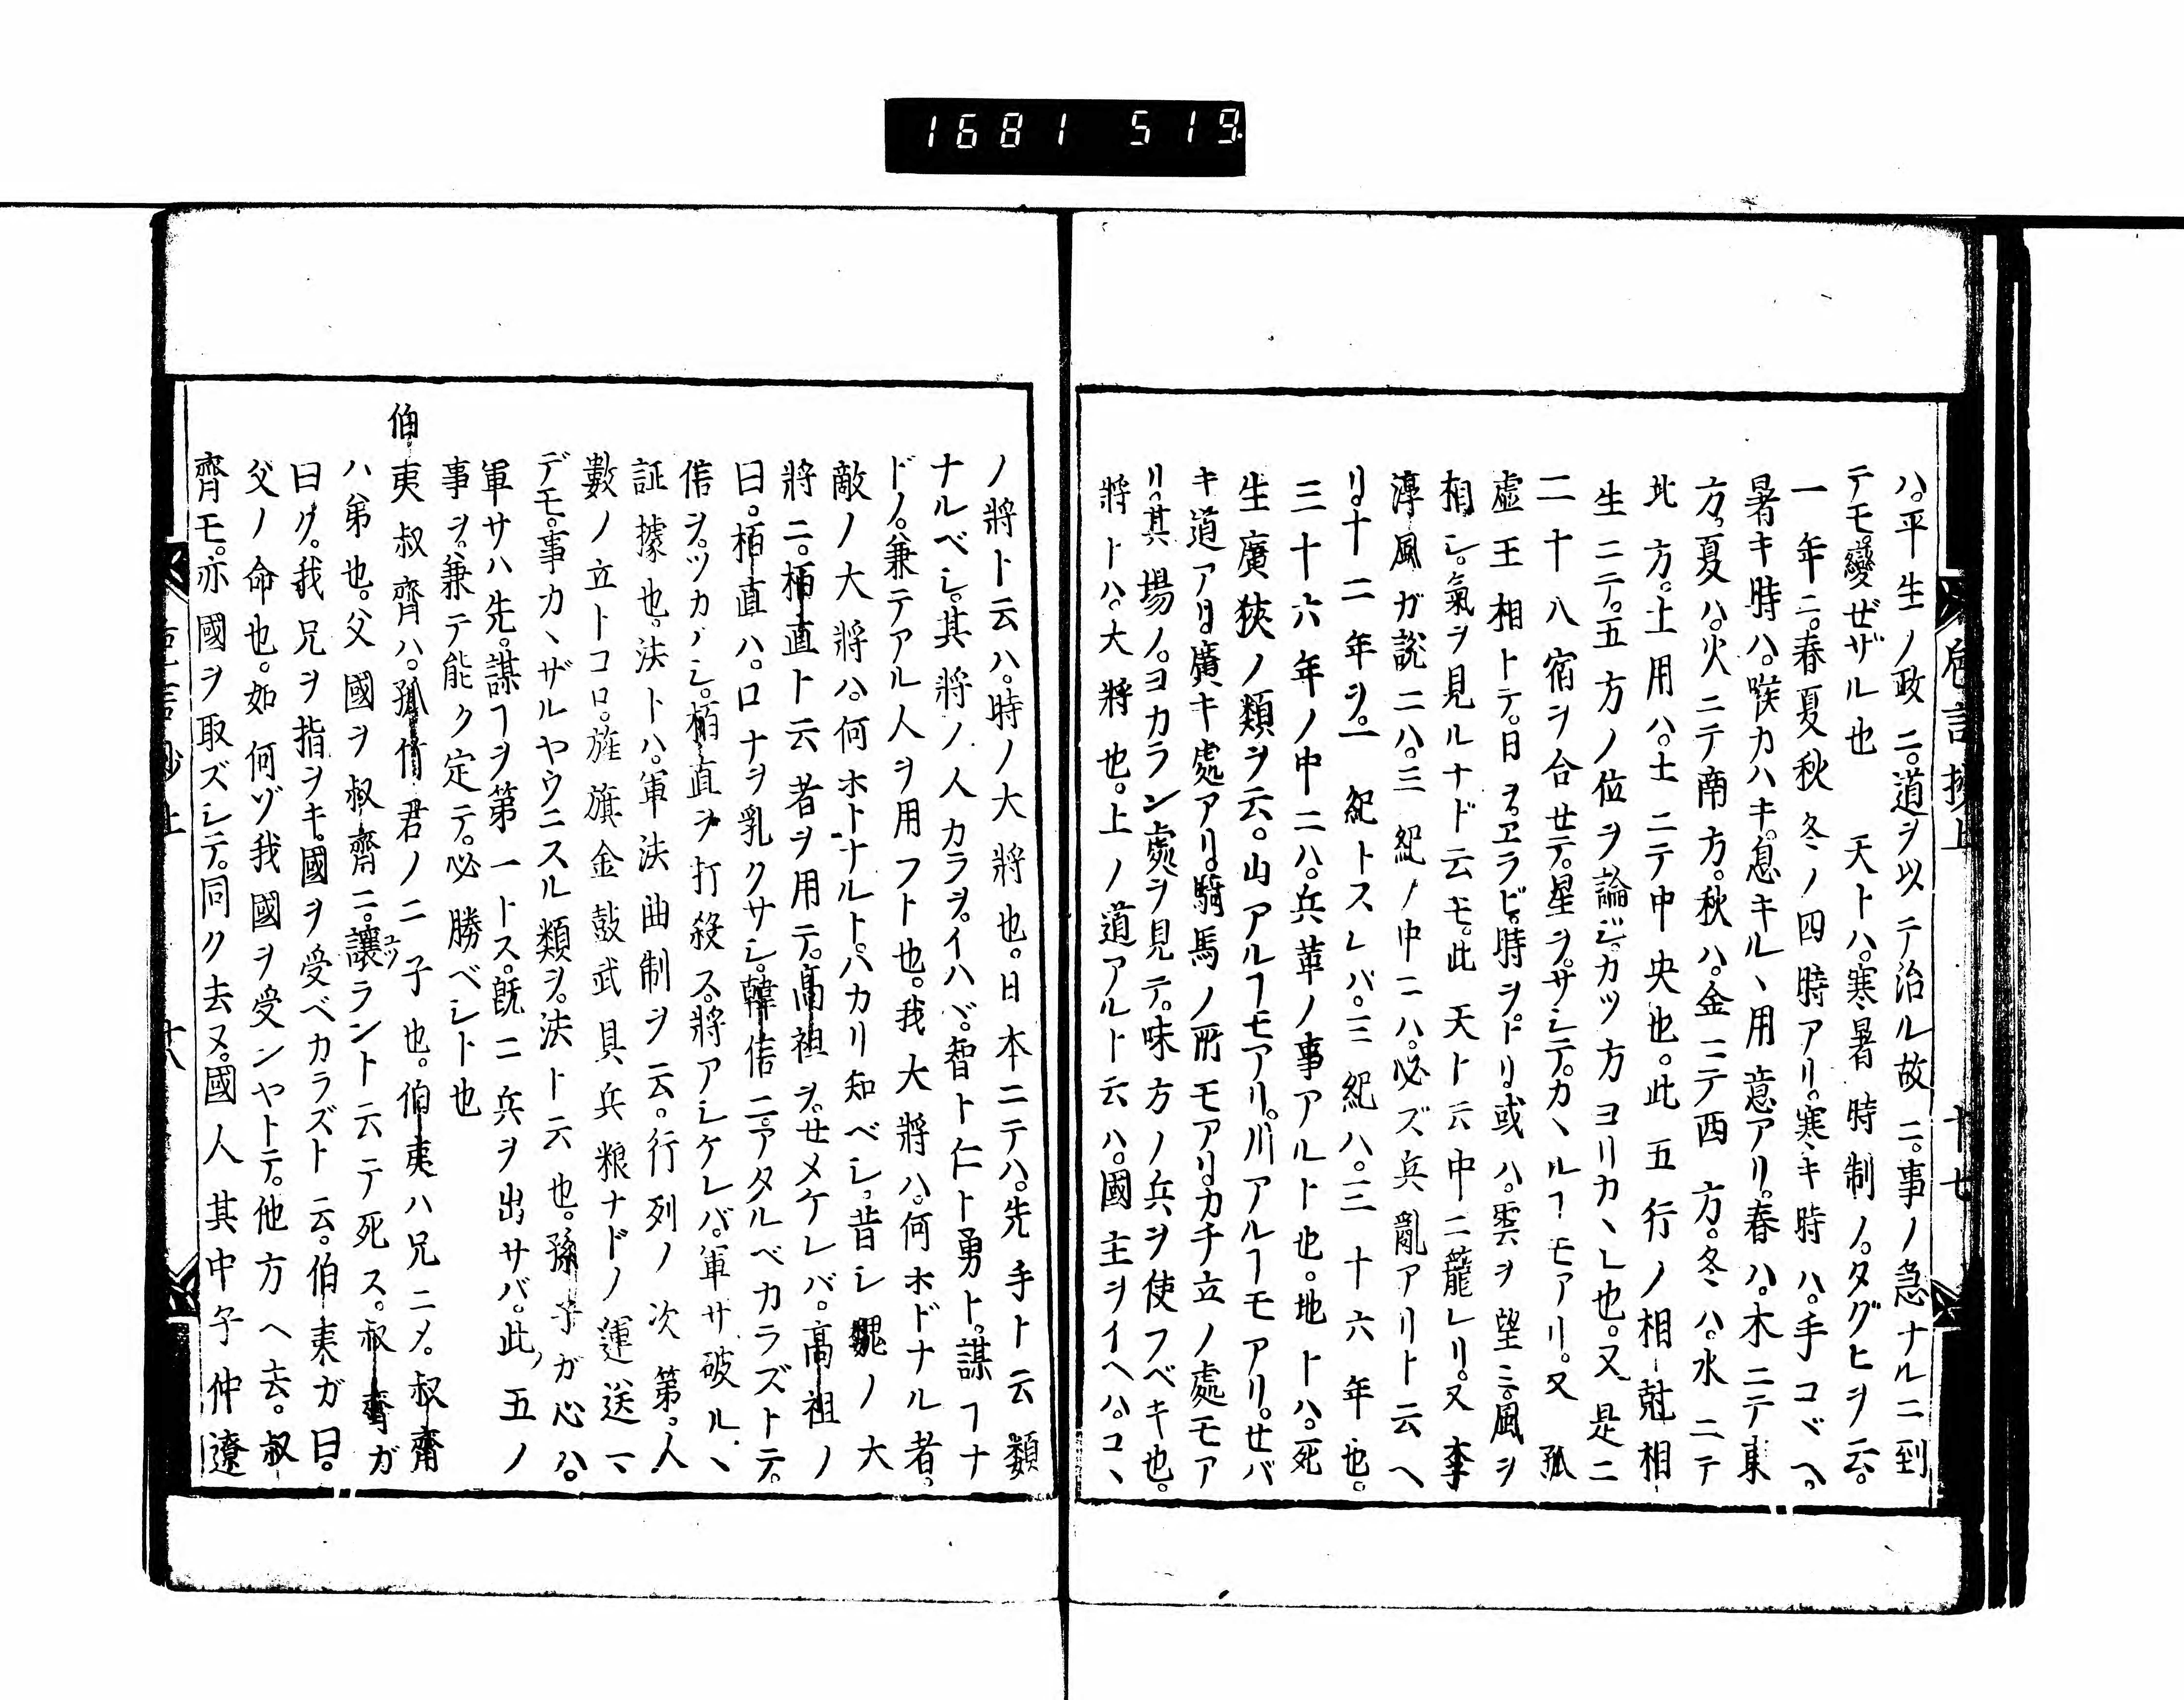 1681 519
ハ。平生ノ政ニ。道ヲ以テ治ル故ニ。事ノ急ナルニ到
テモ。變ゼザル也　天トハ。寒暑時制ノ。タグヒヲ云。
一年ニ。春夏秋冬ノ四時アリ。寒キ時ハ。手コヾヘ。
暑キ時ハ。喉カハキ。息キル丶用意アリ。春ハ。木ニテ東
方。夏ハ。火ニテ南方。秋ハ。金ニテ西方。冬ハ。水ニテ
北方。土用ハ。土ニテ中央也。此五行ノ相尅相
生ニテ。五方ノ位ヲ論ジ。カツ方ヨリカ丶レ也。又是ニ
二十八宿ヲ合セテ。星ヲ。サシテ。カ丶ルヿモアリ。又孤
虚王相トテ。日ヲ。エラビ。時ヲ。ドリ。或ハ。雲ヲ望ミ。風ヲ
相シ。氣ヲ見ルナド云モ。此天ト云中ニ籠レリ。又李
淳風ガ説ニハ。三紀ノ中ニハ。必ズ兵亂アリト云ヘ
リ。十二年ヲ。一紀トスレバ。三紀ハ。三十六年也。
三十六年ノ中ニハ。兵革ノ事アルト也。地トハ。死
生廣狹ノ類ヲ云。山アルヿモアリ。川アルヿモアリ。せバ
キ道アリ。廣キ處アリ。騎馬ノ所モアリ。カチ立ノ處モア
リ。其場ノ。ヨカラン處ヲ見テ。味方ノ兵ヲ使フベキ也。
將トハ。大將也。上ノ道アルト云ハ。國主ヲイヘハ。コ丶
ノ將ト云ハ。時ノ大將也。日本ニテハ。先手ト云類
ナルベシ。其將ノ人カラヲ。イハヾ。智ト仁ト勇ト。謀ヿナ
ドノ。兼テアル人ヲ用フト也。我大將ハ。何ホドナル者。
敵ノ大將ハ。何ホトナルト。ハカリ知ベシ。昔シ魏ノ大
將ニ。栢直ト云者ヲ用テ。高祖ヲ。せメケレバ。高祖ノ
曰。栢直ハ。口ナヲ乳クサシ。韓信ニ。アタルベカラズトテ。
信ヲ。ツカハシ。栢直ヲ打殺ス。將アシケレバ。軍サ破ル丶
証據也。法トハ。軍法曲制ヲ云。行列ノ次第。人
數ノ立トコロ。旌旗金鼓武具兵粮ナドノ運送マ
デモ。事カ丶ザルヤウニスル類ヲ。法ト云也。孫子ガ心ハ。
軍サハ先。謀ヿヲ第一トス。既ニ兵ヲ出サバ。此五ノ
事ヲ。兼テ能ク定テ。必勝ベシト也
伯夷叔齊ハ。孤竹君ノ二子也。伯夷ハ兄ニメ。叔齊
ハ弟也。父國ヲ叔齊ニ。讓ラント云テ死ス。叔齊ガ
曰ク。我兄ヲ指ヲキ。國ヲ受ベカラズト云。伯夷ガ曰。
父ノ命也。如何ゾ我國ヲ受ンヤトテ。他方ヘ去。叔
齊モ。亦國ヲ取ズシテ。同ク去ヌ。國人其中子仲遼